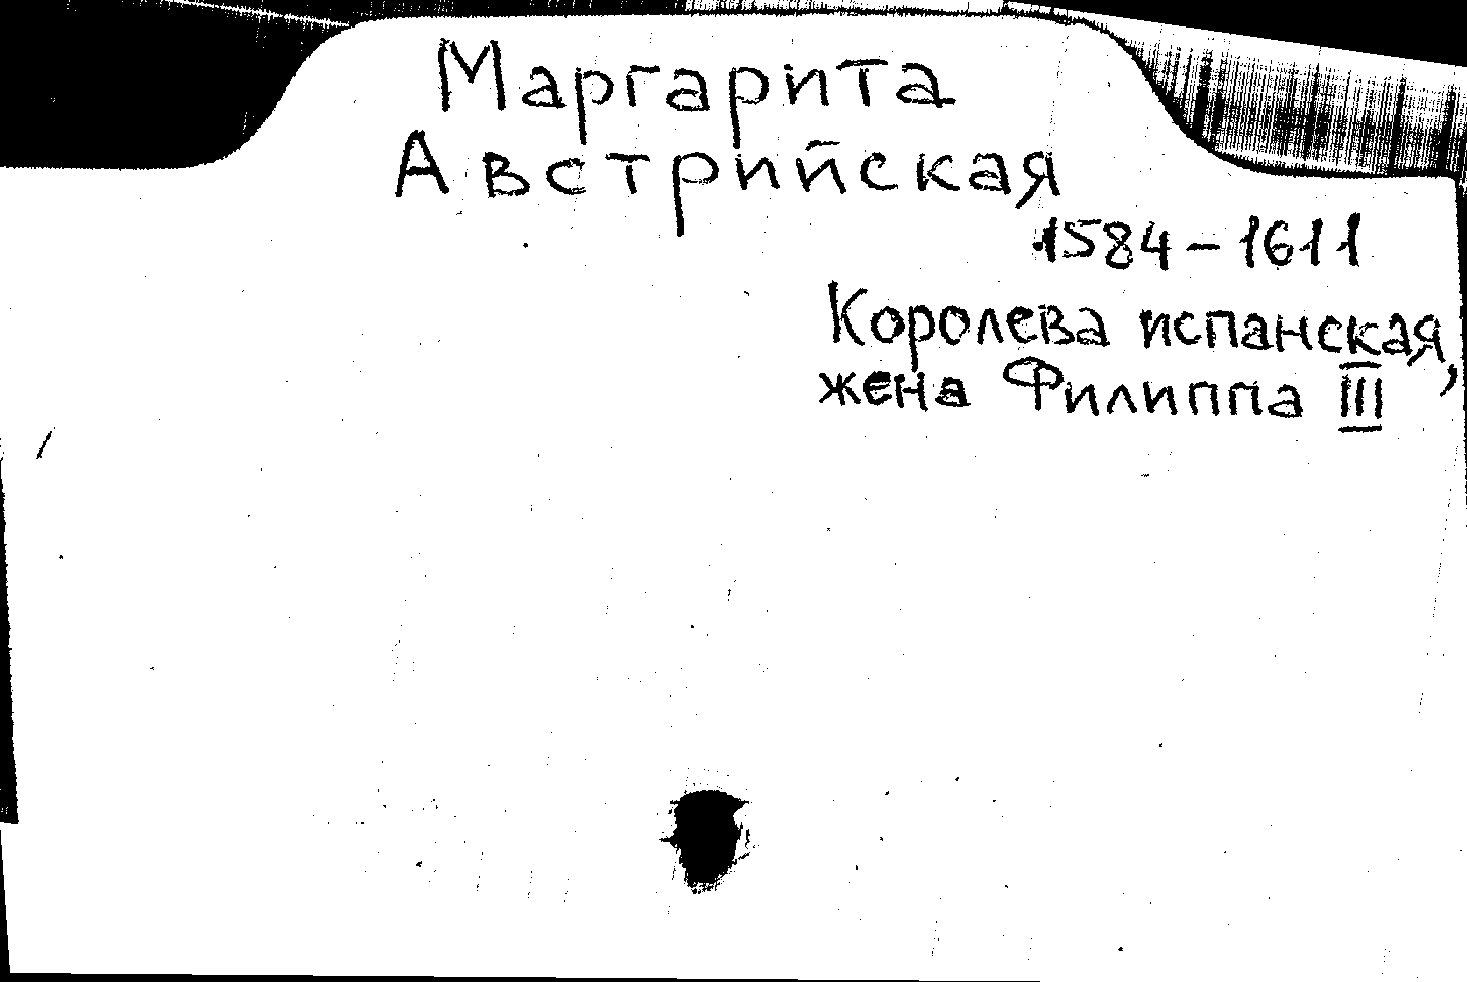 Маргарита
Австрийская
1584-1611
Королева испанская,
жена Филиппа III